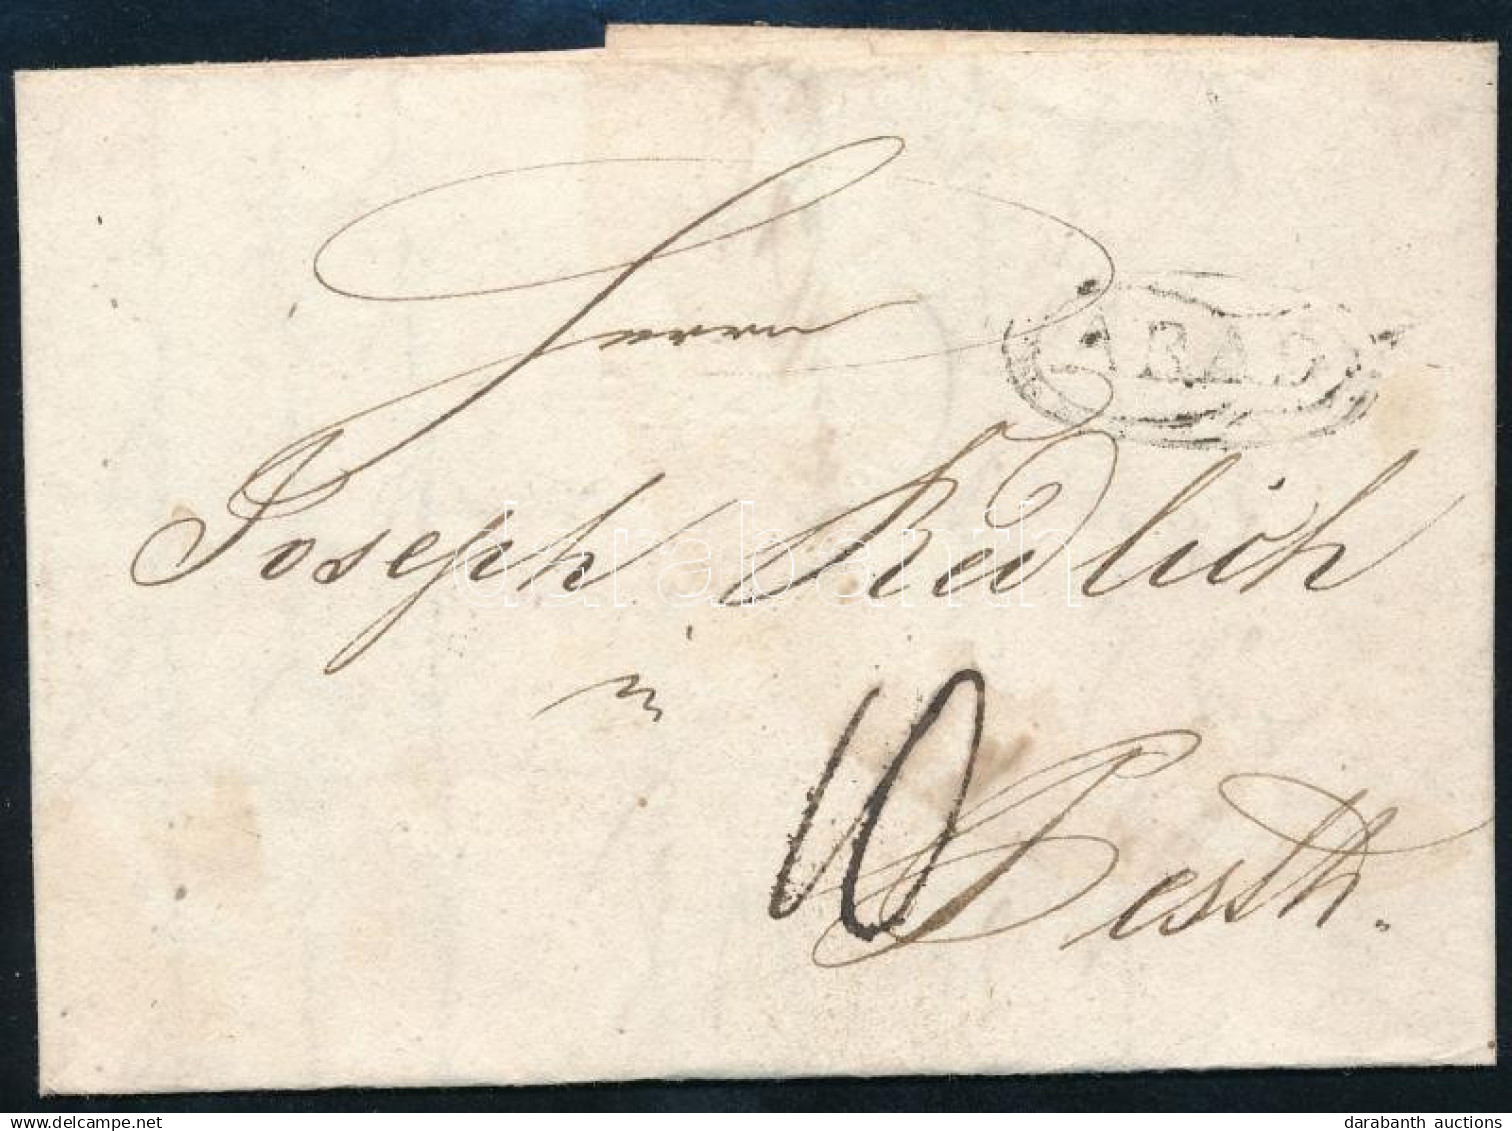 Herrn
ARAD
Joseph Redlich
in
10
Pesth.
darabanth
darabanth auctions